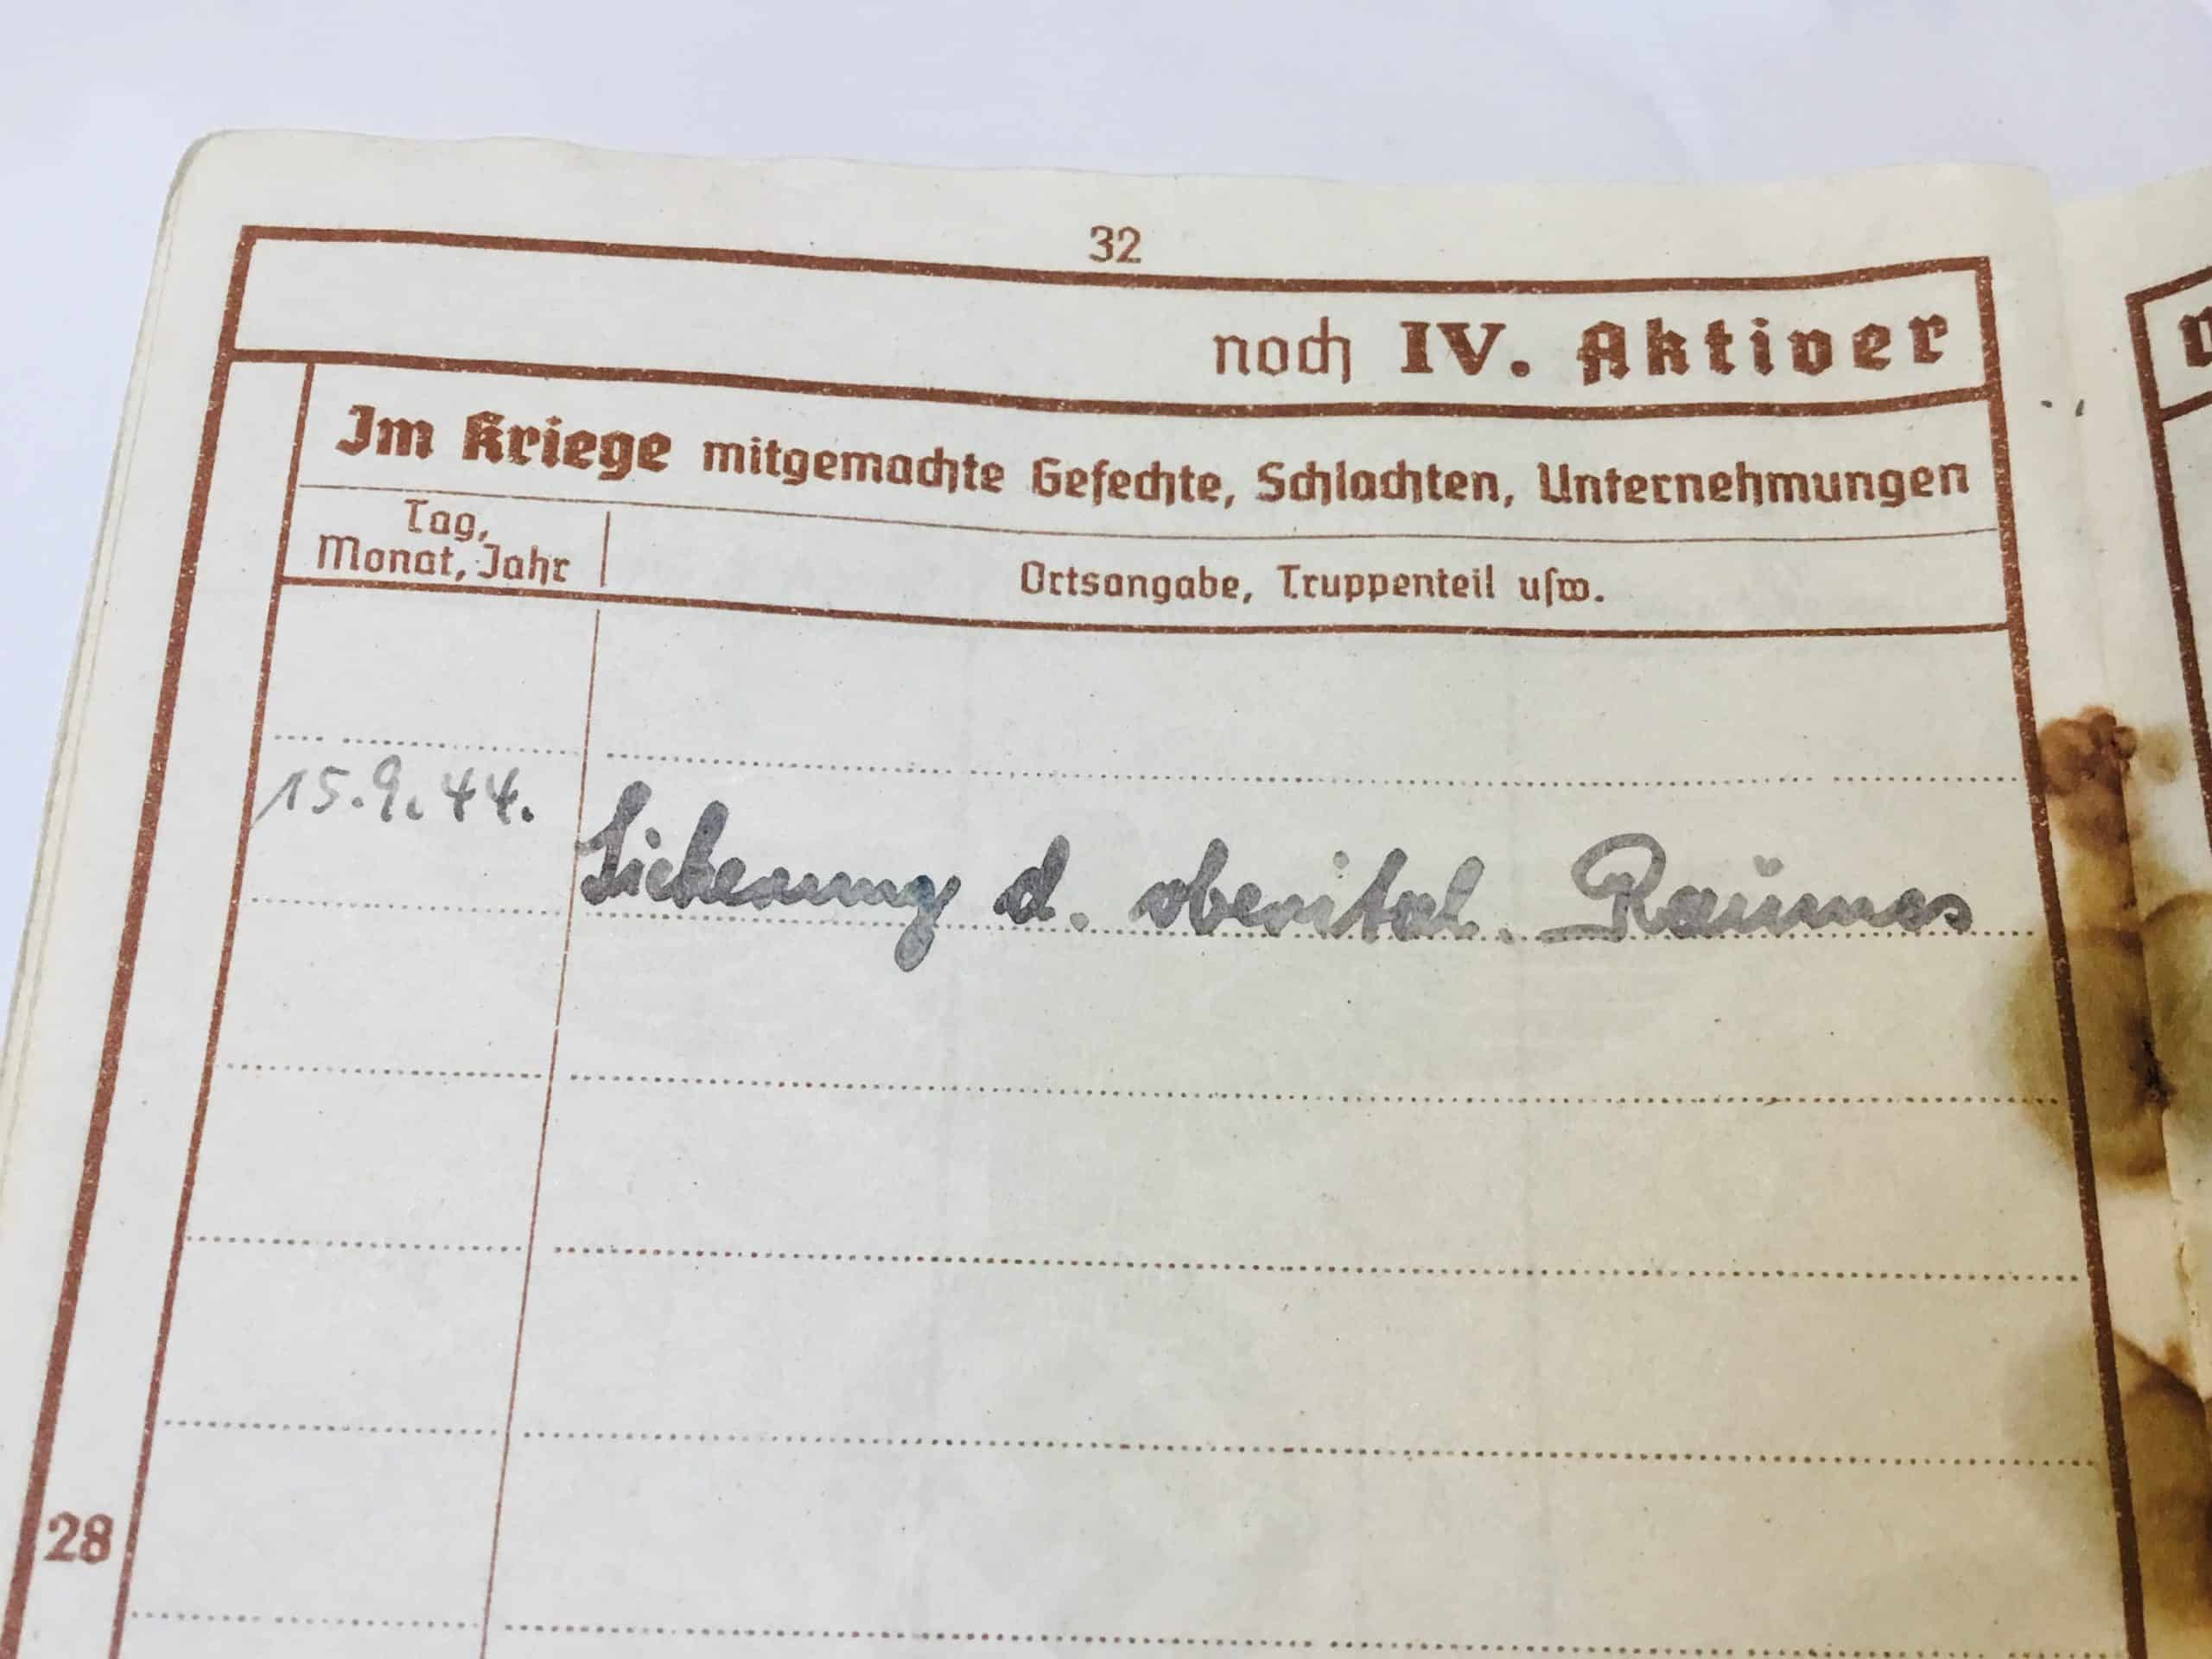 32
noch IV. Aktiver
Im Kriege mitgemachte Gefechte, Schlachten, Unternehmungen
Tag,
Monat, Jahr
Ortsangabe, Truppenteil usw.
15.9.44.
Sicherung d. oberital. Raumes
28